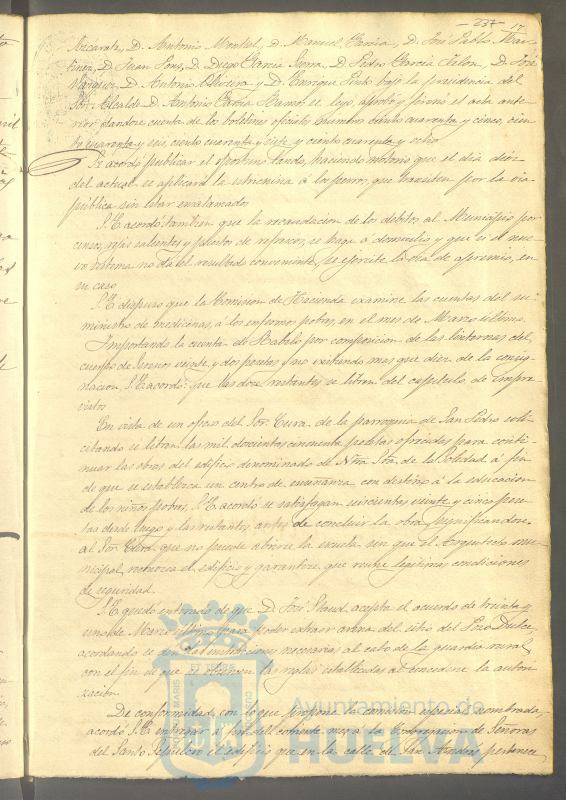 - 237 - 17
Azcarate, D. Antonio Montiel, D. Manuel Garcia, D. José Pablo Mar-
tinez, D. Juan Pons, D. Diego Garcia Serra, D. Pedro Garcia Jalon, D. José
Vazquez, D. Antonio Oliveira y D. Enrique bajo la presidencia del
Sor. Alcalde D. Antonio Garcia Ramos se leyó, aprobó y firmó el acta ante-
rior, dandose cuenta de los boletines oficiales numero ciento cuarenta y cinco, cien-
to cuarenta y seis, ciento cuarenta y siete y ciento cuarenta y ocho.
Se acordó publicar el oportuno bando, haciendo notorio que el dia diez
del actual se aplicará la estricnina á los perros, que transiten por la via
pública sin estar embozalados.
S. E. acordó tambien que la recaudacion de los debitos al Municipio por
censos, rejas salientes y puestos de refrescos, se haga á domicilio y que si el nue-
vo sistema no da el resultado conveniente, se ejercite la via de apremio, en
su caso.
S. E. dispuso que la Comision de Hacienda examine las cuentas del su-
ministro de medicinas, á los enfermos pobres, en el mes de Marzo último.
Importando la cuenta de Babelo por composicion de las linternas del
cuerpo de Serenos veinte y dos pesetas y no existiendo mas que diez de la consig-
nacion, S. E. acordó que las doce restantes se libren del capitulo de impre-
vistos.
En vista de un oficio del Sor. Cura de la parroquia de San Pedro soli-
citando se libren las mil doscientas cincuenta pesetas ofrecidas para conti-
nuar las obras del edificio denominado de Ntra. Sra. de la Soledad á fin
de que se establezca un centro de enseñanza con destino á la educacion
de los niños pobres, S. E. acordó se satisfagan seiscientas veinte y cinco pese-
tas desde luego y las restantes antes de concluir la obra, significandose
al Sor. Cura que no puede abrirse la escuela sin que el Arquitecto mu-
nicipal reconozca el edificio y garantice que reune legitimas condiciones
de seguridad.
S. E. quedó enterado de que D. José acepta el acuerdo de treinta y
uno de Marzo último para poder extraer arena del sitio del Pozo Dulce,
acordando se den las instrucciones necesarias al cabo de la guardia rural
con el fin de que se observen las reglas establecidas al concederse la autori-
zacion.
De conformidad con lo que propone la comision especial nombrada,
acordó S. E. entregar á la Congregacion de Señoras
del Santo Sepulcro el edificio que en la calle de San Andrés pertenece
Ayuntamiento de
HUELVA